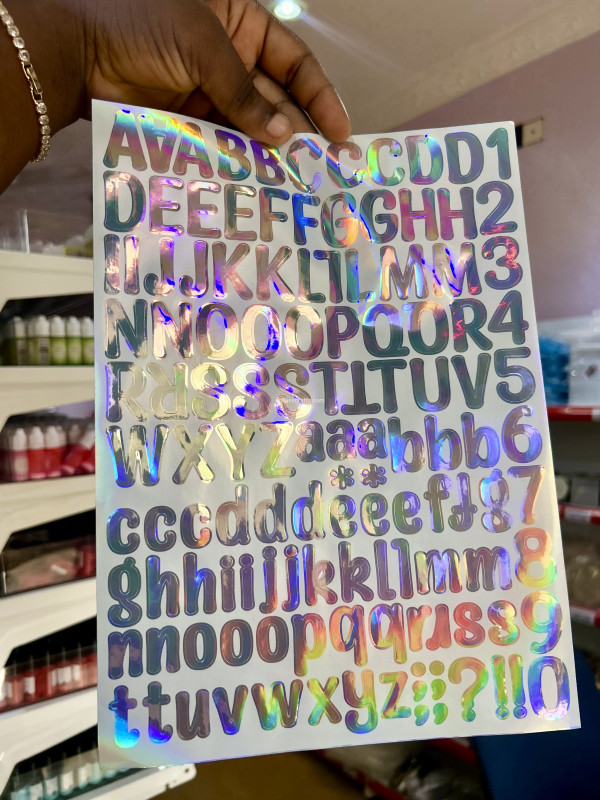 AVABBCCCDD1
DEEEFFGGHH2
IIJJJKKLTLMM3
NNOOOPQOR4
RRSSSSTTTUV5
WXYZaaabbb6
cccdddeeeffg7
**
ghhiijjjkkllmm8
mnnooopqqrrsss9
ttuvvwwxyz;;?!!0